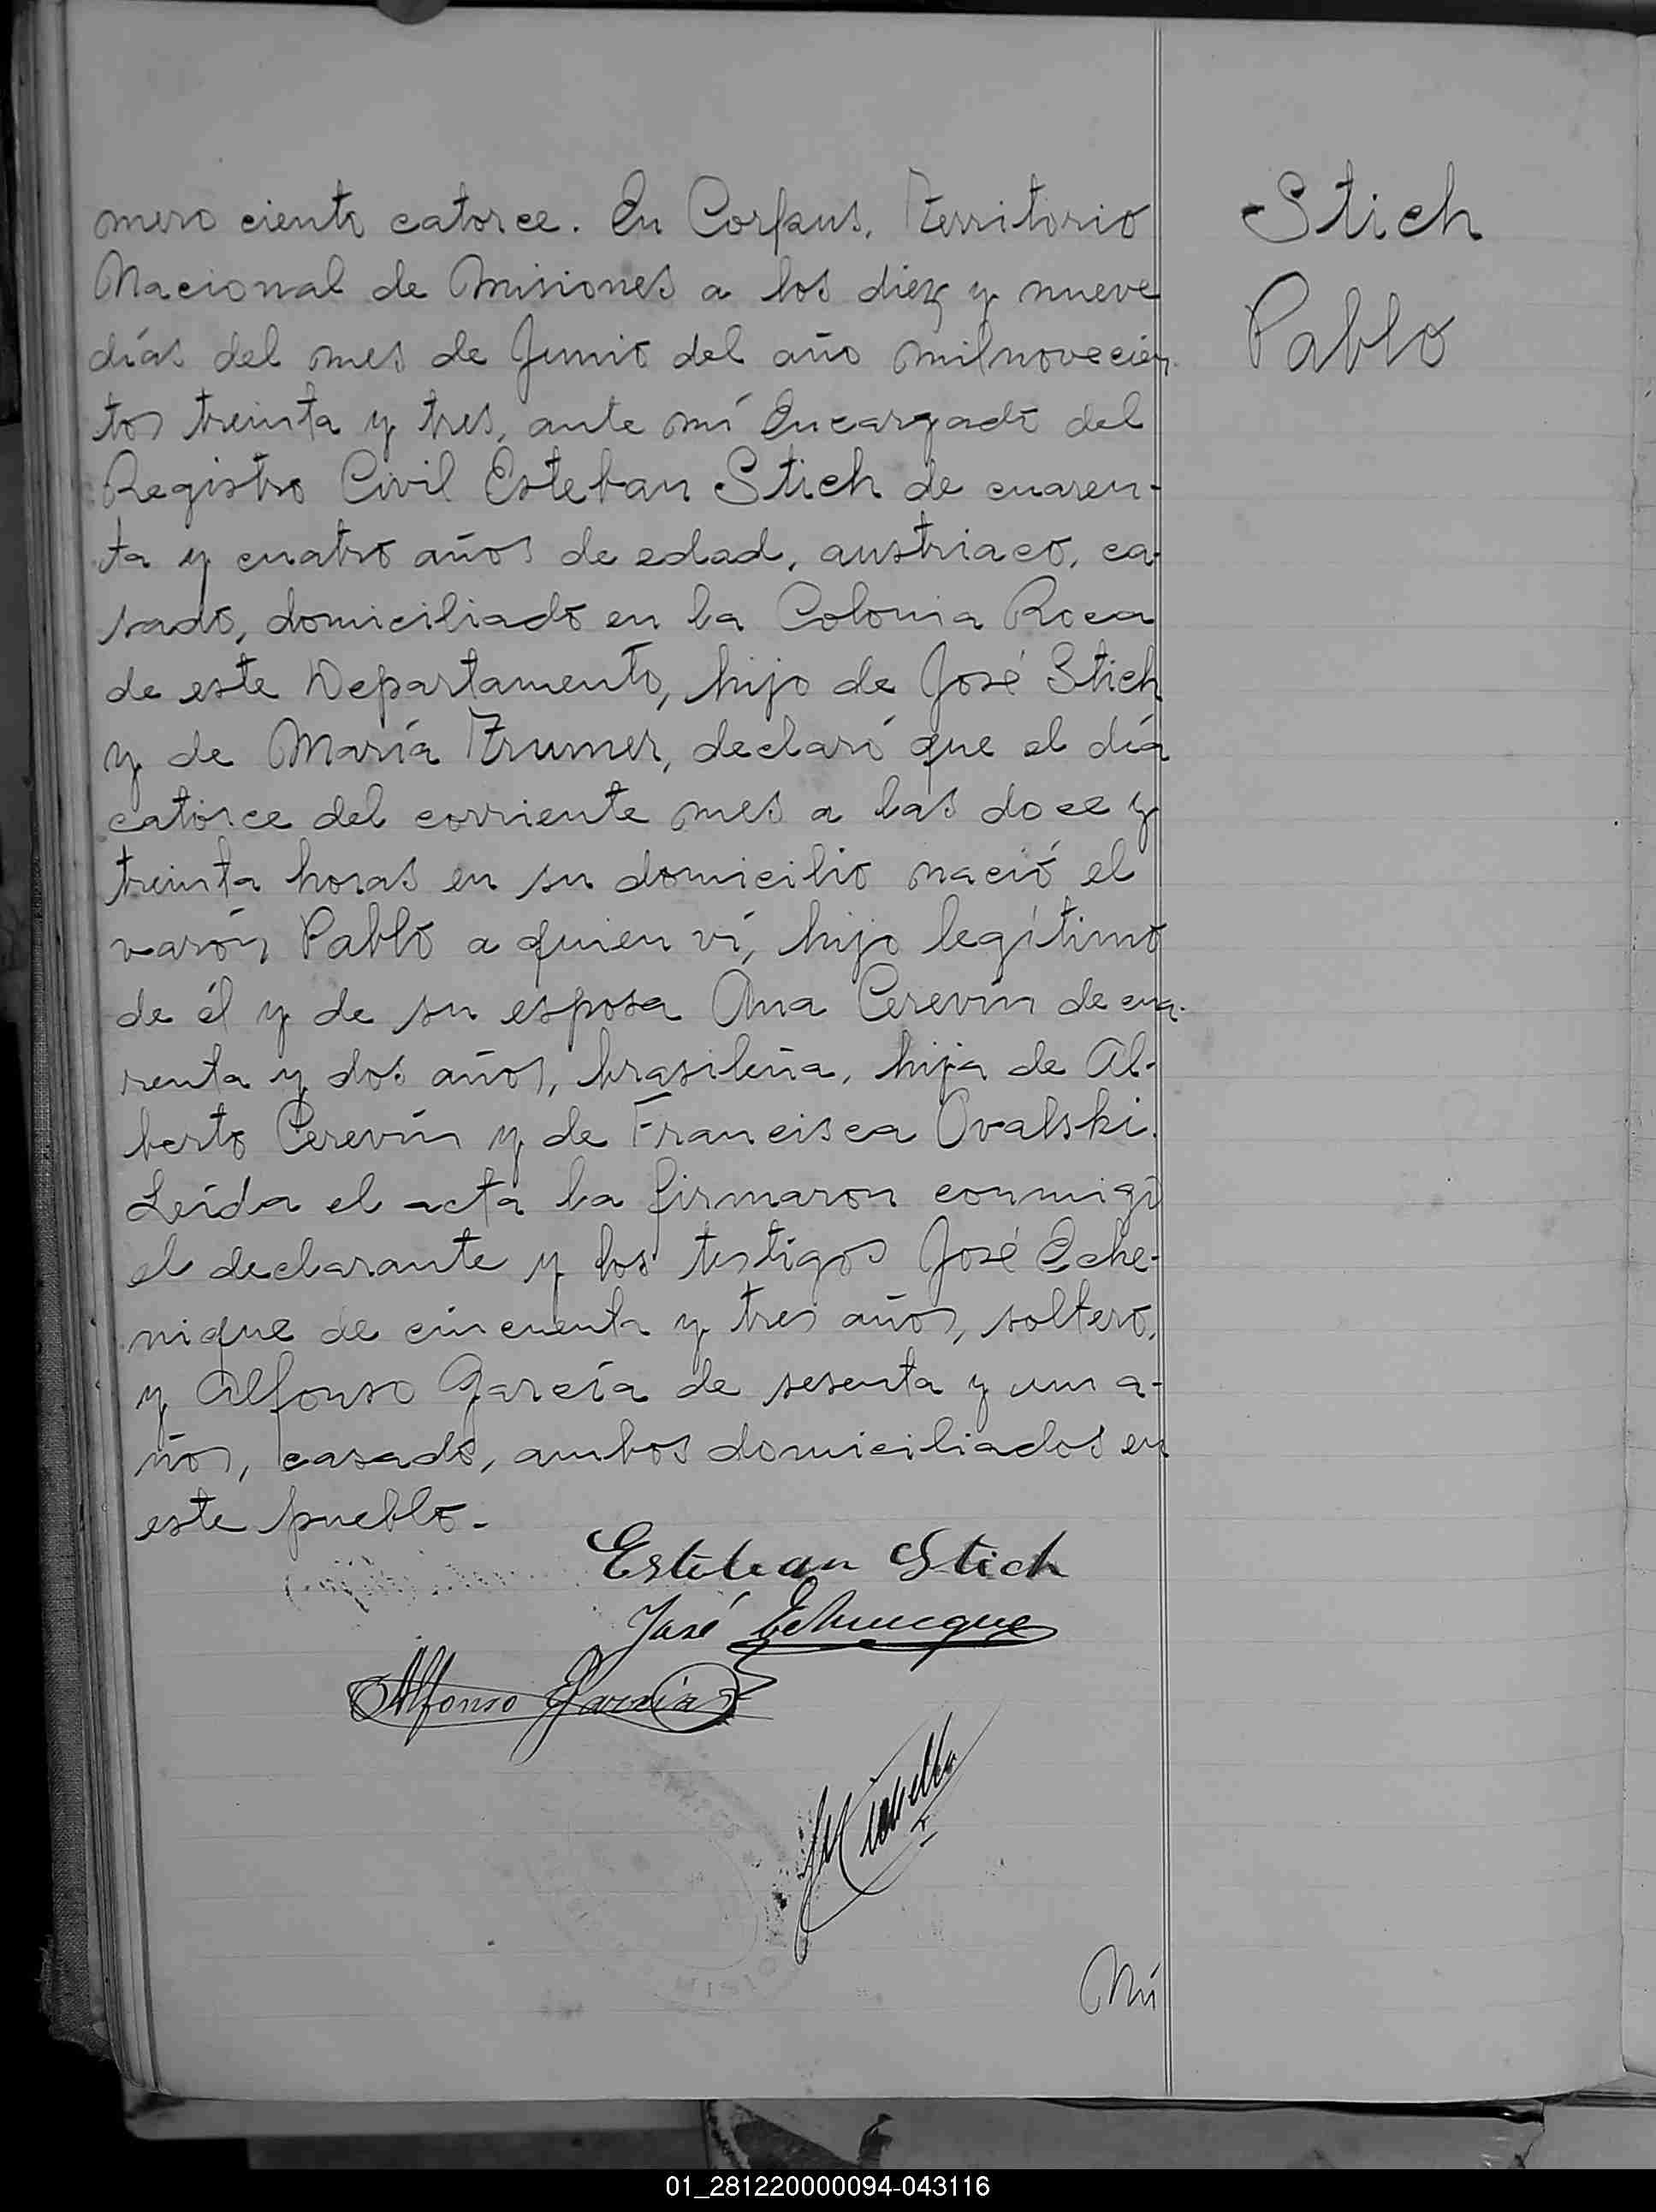 mero ciento catorce. En Corpus, Territorio
Nacional de Misiones a los diez y nueve
días del mes de Junio del año milnovecien
tos treinta y tres, ante mí Encargado del
Registro Civil Esteban Stich de cuaren-
ta y cuatro años de edad, austriaco, ca-
sado, domiciliado en la Colonia Roca
de este Departamento, hijo de José Stich
y de María Trumer, declaró que el día
catorce del corriente mes a las doce y
treinta horas en su domicilio nació el
varón Pablo a quien ví, hijo legítimo
de él y de su esposa Ana Cerevín de cua-
renta y dos años, brasileña, hija de Al-
berto Cerevín y de Francisca Ovalski.
Leída el acta la firmaron conmigo
el declarante y los testigos José Eche-
nique de cincuenta y tres años, soltero,
y Alfonso García de sesenta y un a-
ños, casado, ambos domiciliados en
este pueblo.-
Stich
Pablo
Esteban Stich
José Echenique
Alfonso García
Nú
01_281220000094-043116